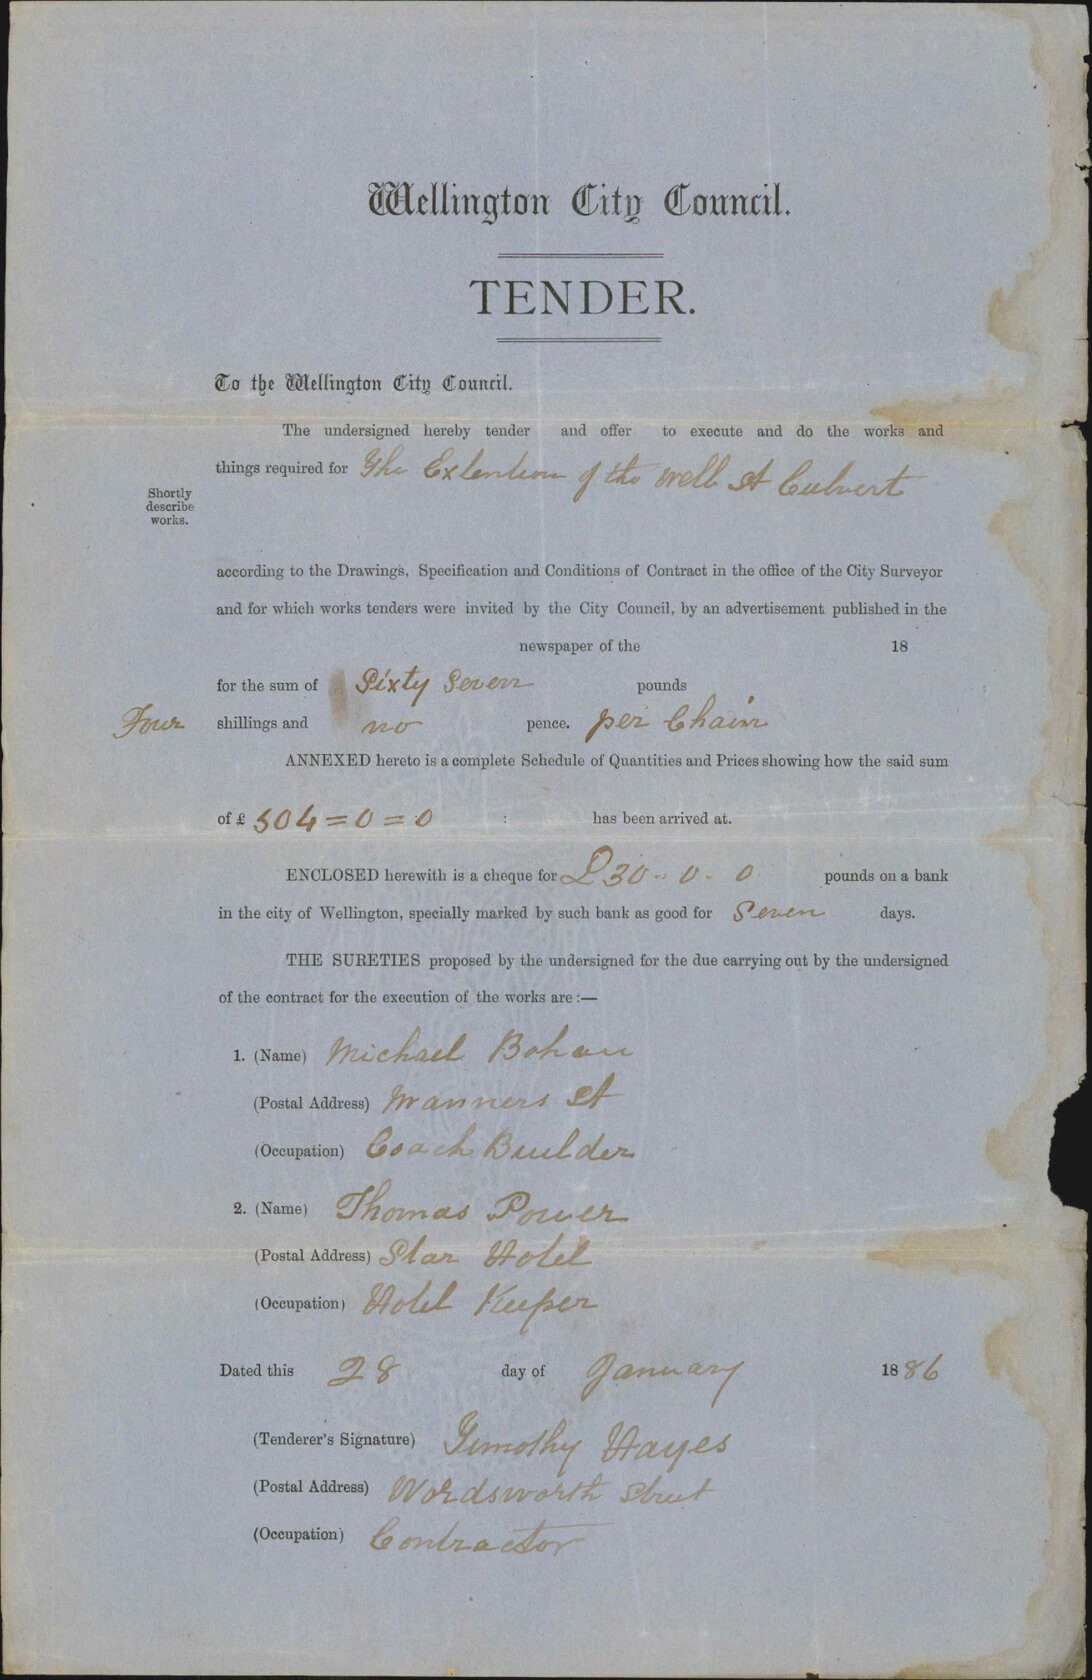 Wellington City Council.
TENDER.
To the Wellington City Council.
The undersigned hereby tender and offer to execute and do the works and
things required for The Extention of the Well St Culvert
Shortly
describe
works.
according to the Drawings, Specification and Conditions of Contract in the office of the City Surveyor
and for which works tenders were invited by the City Council, by an advertisement published in the
newspaper of the 18
for the sum of Sixty Seven pounds
Four shillings and no pence. per Chain
ANNEXED hereto is a complete Schedule of Quantities and Prices showing how the said sum
of £ 504=0=0 : has been arrived at.
ENCLOSED herewith is a cheque for £30-0-0 pounds on a bank
in the city of Wellington, specially marked by such bank as good for Seven days.
THE SURETIES proposed by the undersigned for the due carrying out by the undersigned
of the contract for the execution of the works are :—
1. (Name) Michael Bohan
(Postal Address) Manners St
(Occupation) Coach Builder
2. (Name) Thomas Power
(Postal Address) Star Hotel
(Occupation) Hotel Keeper
Dated this 28 day of January 1886
(Tenderer's Signature) Timothy Hayes
(Postal Address) Wordsworth Street
(Occupation) Contractor